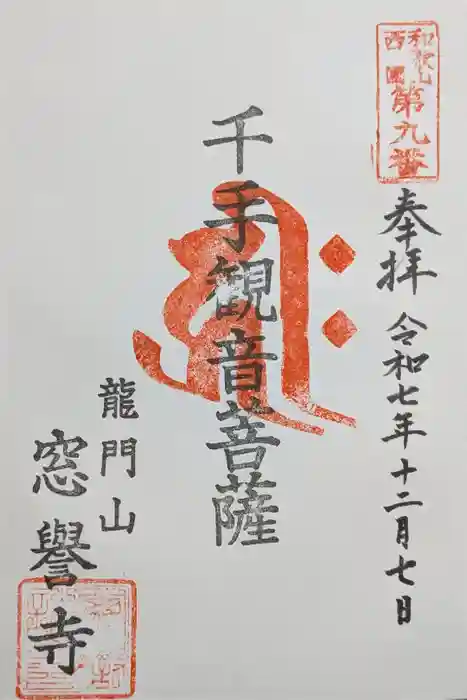 和歌山
西国
第九番
奉拝
令和七年十二月七日
千手観音菩薩
龍門山
窓譽寺